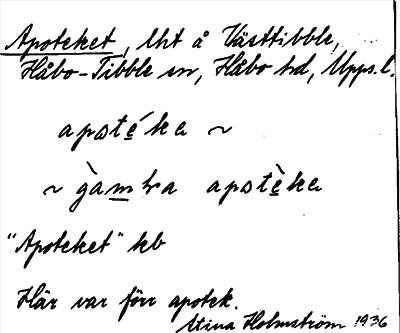 Apoteket, lht å Västtibble,
Håbo-Tibble sn, Håbo hd, Upps.l.
apotéka ~
~ gàmḷa apotèka
"Apoteket" kb
Här var förr apotek.
Stina Holmström 1936